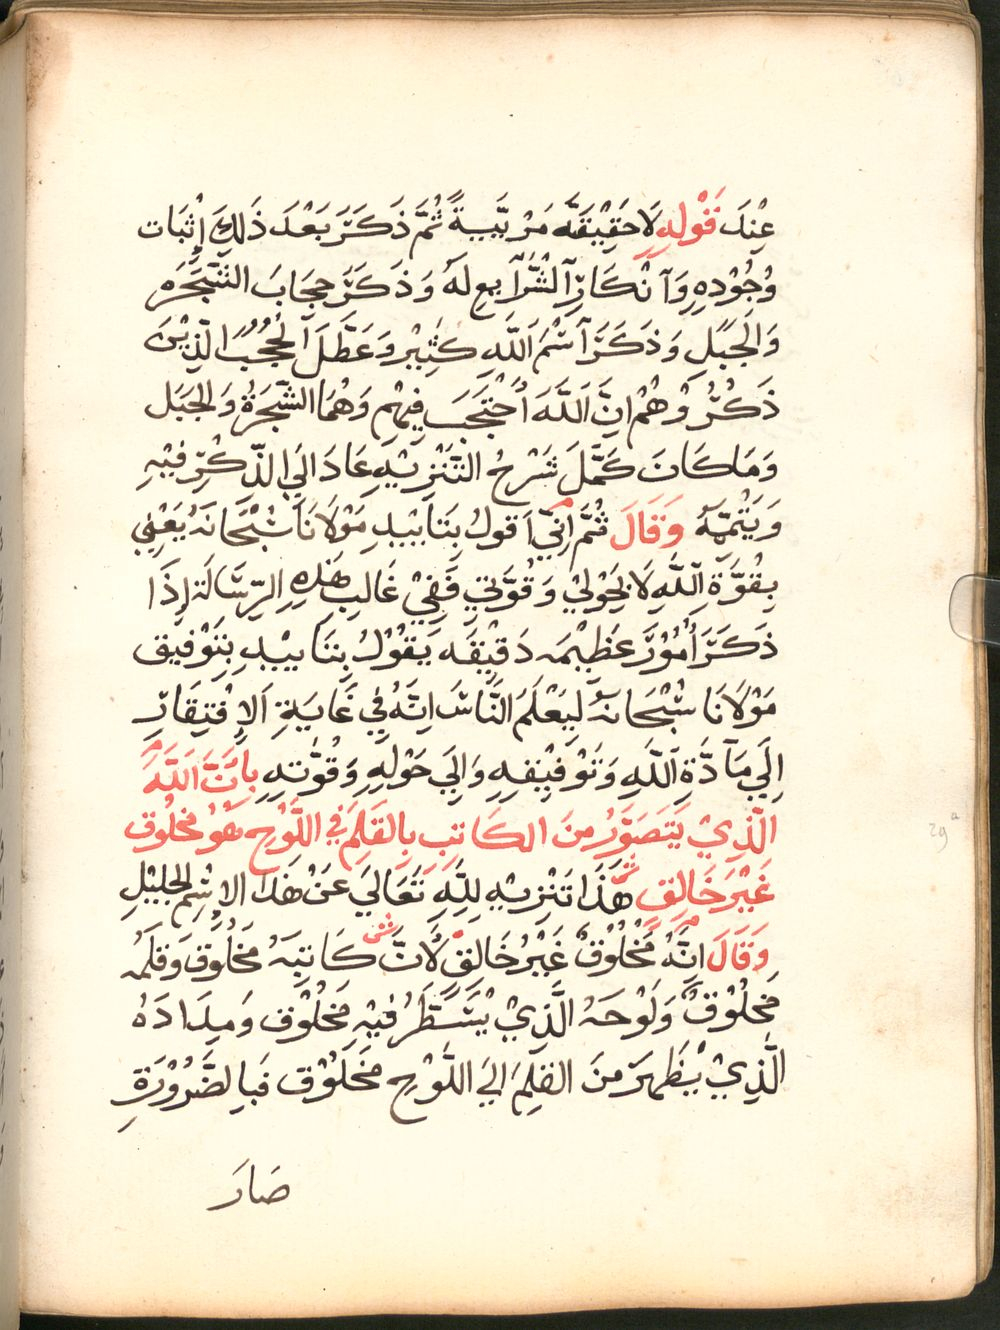 عِنْدَ قَوْلِهِ لَا حَقِيْقَةً مَرْئِيَّةً ثُمَّ ذَكَرَ بَعْدَ ذَلِكَ إِثْبَات
وُجُوْدِهِ وَاَنْكَارِ الشَّرَايِعِ لَهُ وَذَكَرَ حِجَابَ الشَّجَرَه
وَالجَبَلِ وَذَكَرَ اَسْمَ اللّٰهِ كَثِيْر وَعَطَّلَ الحُجُبَ الَّذِيْنَ
ذَكَرُوْهُمْ انَّ اللّٰهَ اَحْتَجَبَ فِيهِم وَهُمَا الشَّجَرَةُ وَالجَبَل
وَمَا كَانَ كَمَّلَ شَرْحُ التَّنْزِيْهِ عَادَ الَي الذِّكْرِ فِيْهِ
وَيَتُمِّهُ وَقَالَ ثُمَّ اِنِّي اَقولُ بِتَايِيْدِ مَوْلَانَا سُبْحَانَهُ يَعْنِي
بِقُوَّةِ اللّٰهِ لَا بِحَوْلِيْ وَقُوَّتِي فَفِيْ غَالِبِ هَذِهِ الرِّسَالَة إِذَا
ذَكَرَ أُمُوْرَ عَظِيْمَه دَقِيْقَه يَقُوْلُ بِتَايِيْدِ بِتَوْفِيق
مَوْلَانَا سُبْحَانَهُ لِيَعْلَمَ النَّاسَ اِنَّهُ فِي غَايَةِ الاِفْتِقَارِ
اِلَي مَآدَّةِ اللّٰهِ وَتَوْفِيْقِهِ وَاِلَي حَوْلِهِ وَقُوَّتِهِ بِاَنَّ اللّٰهَ
الَّذِيْ يَتَصَوَّرُ مِنَ الكَاتِبِ بِالقَلَمِ فِي اللَّوْحِ هُوَ مَخْلُوق
غَيْرَ خَالِقٍ هَذَا تَنْزِيْهِ لِلّٰهِ تَعَالَي عَنْ هَذَا الاِسْمِ الجَلِيْلِ
وَقَالَ اِنَّهُ مَخْلُوْقٌ غَيْرُ خَالِقٍ ش لَانَّ كَاتِبَهُ مَخْلُوق وَقَلَمُه
مَخْلُوْقٌ وَلَوْحَهُ الَّذِيْ يُسَطَّرُ فِيْهِ مَخْلُوْق وَمِدَادَهُ
الَّذِيْ يَظْهَرَ مِنَ القَلَمِ اليَ اللَّوْحِ مَخْلُوْق فَبِالضَّرُوْرَةِ
صَارَ
29a